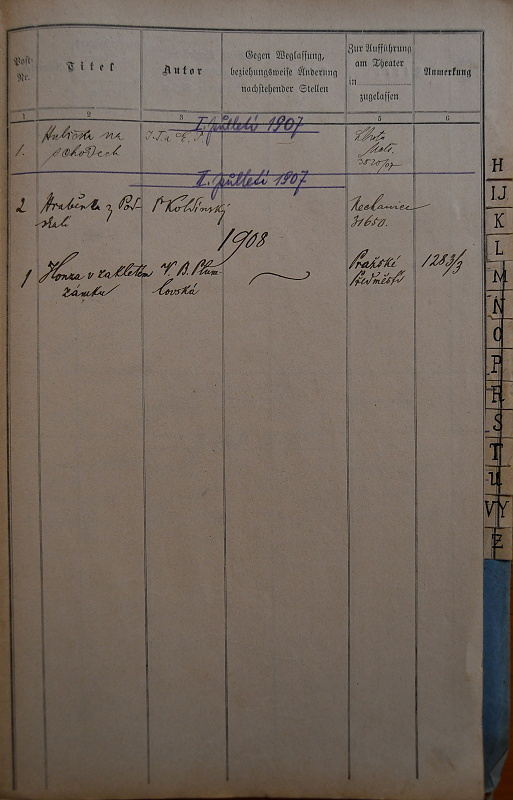 Post-
Nr.
Titel
Autor
Gegen Weglassung,
beziehungsweise Änderung
nachstehender Stellen
Zur Aufführung
am Theater
in
zugelassen
Anmerkung
1 2 3 5 6
I. pulletí 1907
1. na
II. pulletí 1907
2 Hraběnka z Pod-
skalí
Koldinský
Nechanice
31650.
1908
1 Honza v zakletém
zámku
V. B. Plum-
lovská
Pražské
Předměstí
1283/3
H
IJ
K
L
M
N
O
P
R
S
T
U
VY
Z